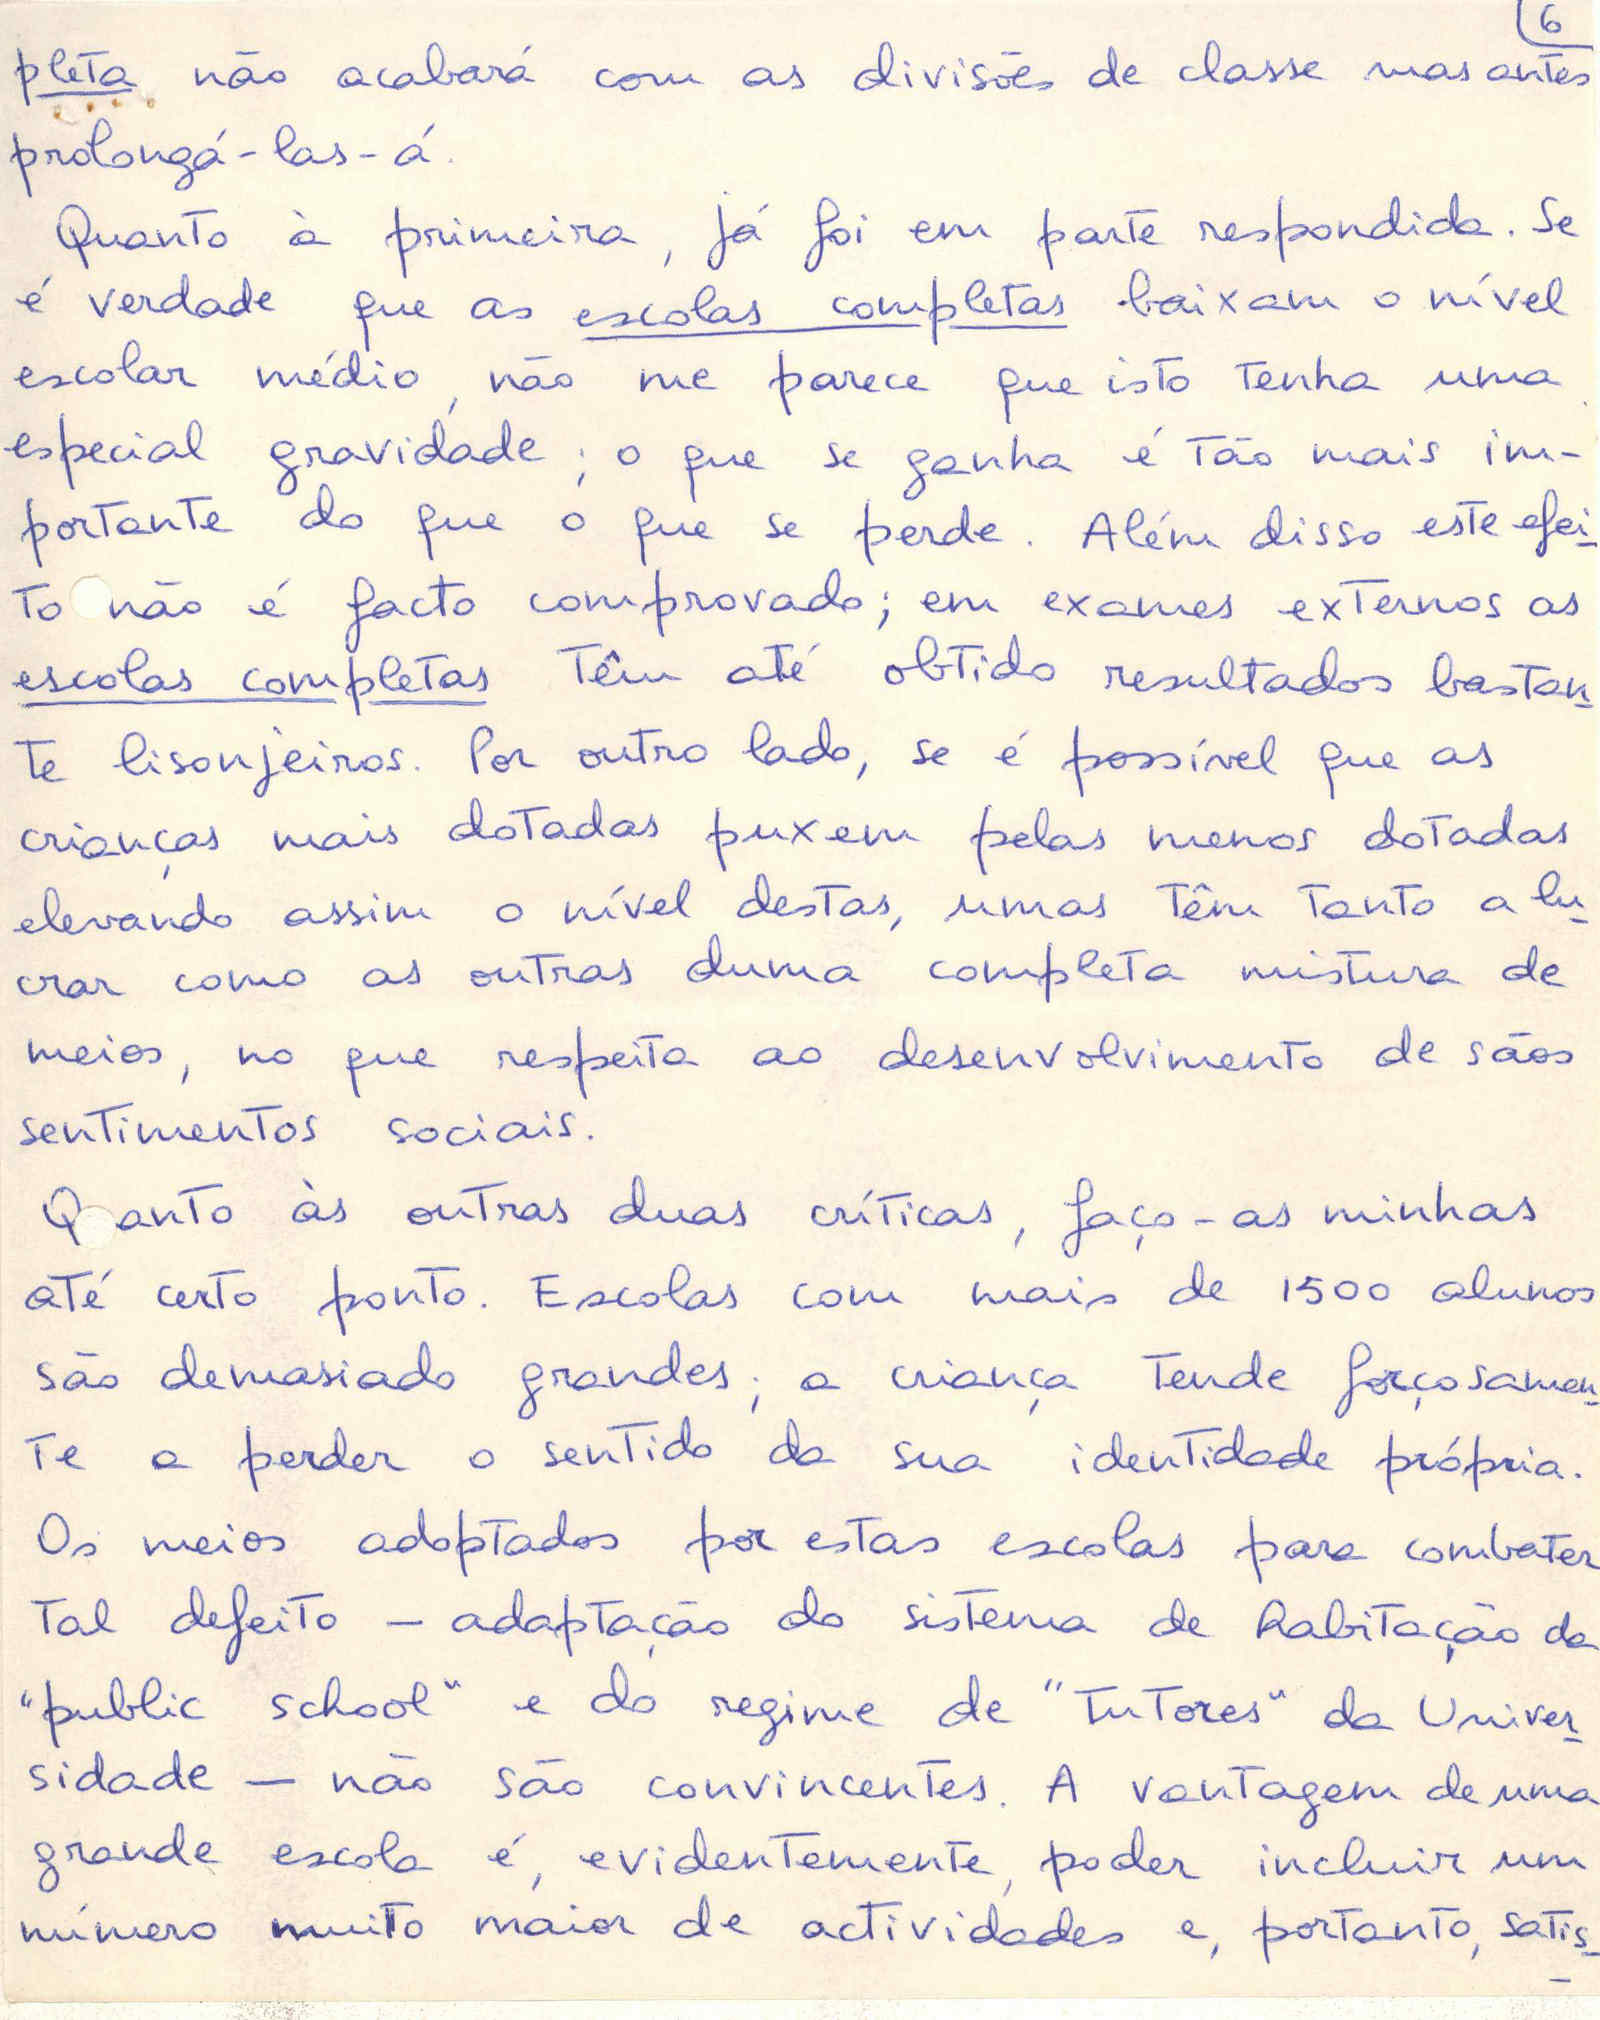 6
pleta não acabará com as divisões de classe mas antes
prolongá-las-á.
Quanto à primeira, já foi em parte respondida. Se
é verdade que as escolas completas baixam o nível
escolar médio, não me parece que isto tenha uma
especial gravidade; o que se ganha é tão mais im-
portante do que o que se perde. Além disso este efei-
to não é facto comprovado; em exames externos as
escolas completas têm até obtido resultados bastan-
te lisonjeiros. Por outro lado, se é possível que as
crianças mais dotadas puxem pelas menos dotadas
elevando assim o nível destas, umas têm tanto a lu-
crar como as outras duma completa mistura de
meios, no que respeita ao desenvolvimento de sãos
sentimentos sociais.
Q anto às outras duas críticas, faço-as minhas
até certo ponto. Escolas com mais de 1500 alunos
são demasiado grandes; a criança tende forçosamen-
te a perder o sentido da sua identidade própria.
Os meios adoptados por estas escolas para combater
tal defeito — adaptação do sistema de habitação da
"public school" e do regime de "tutores" da Univer-
sidade — não são convincentes. A vantagem de uma
grande escola é, evidentemente, poder incluir um
número muito maior de actividades e, portanto, satis-